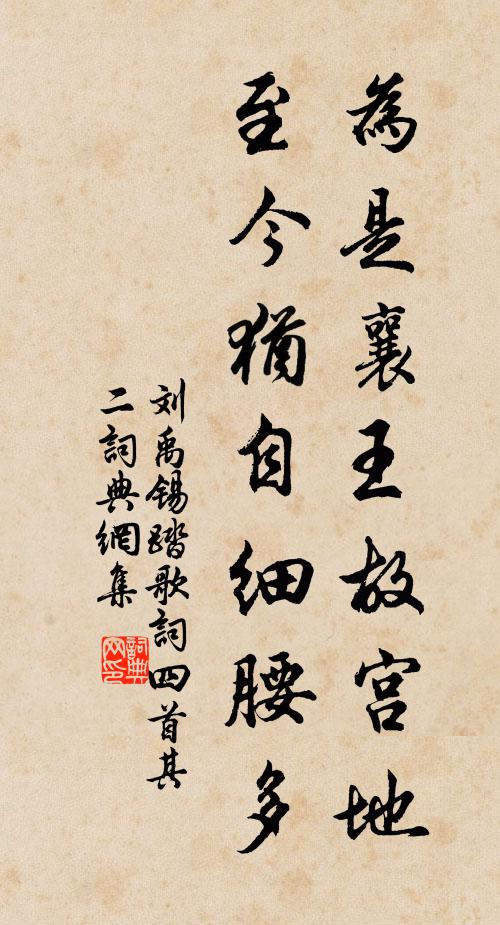 為是襄王故宮地
至今猶自細腰多
刘禹锡踏歌詞四首其
二詞典網集
詞典
网印